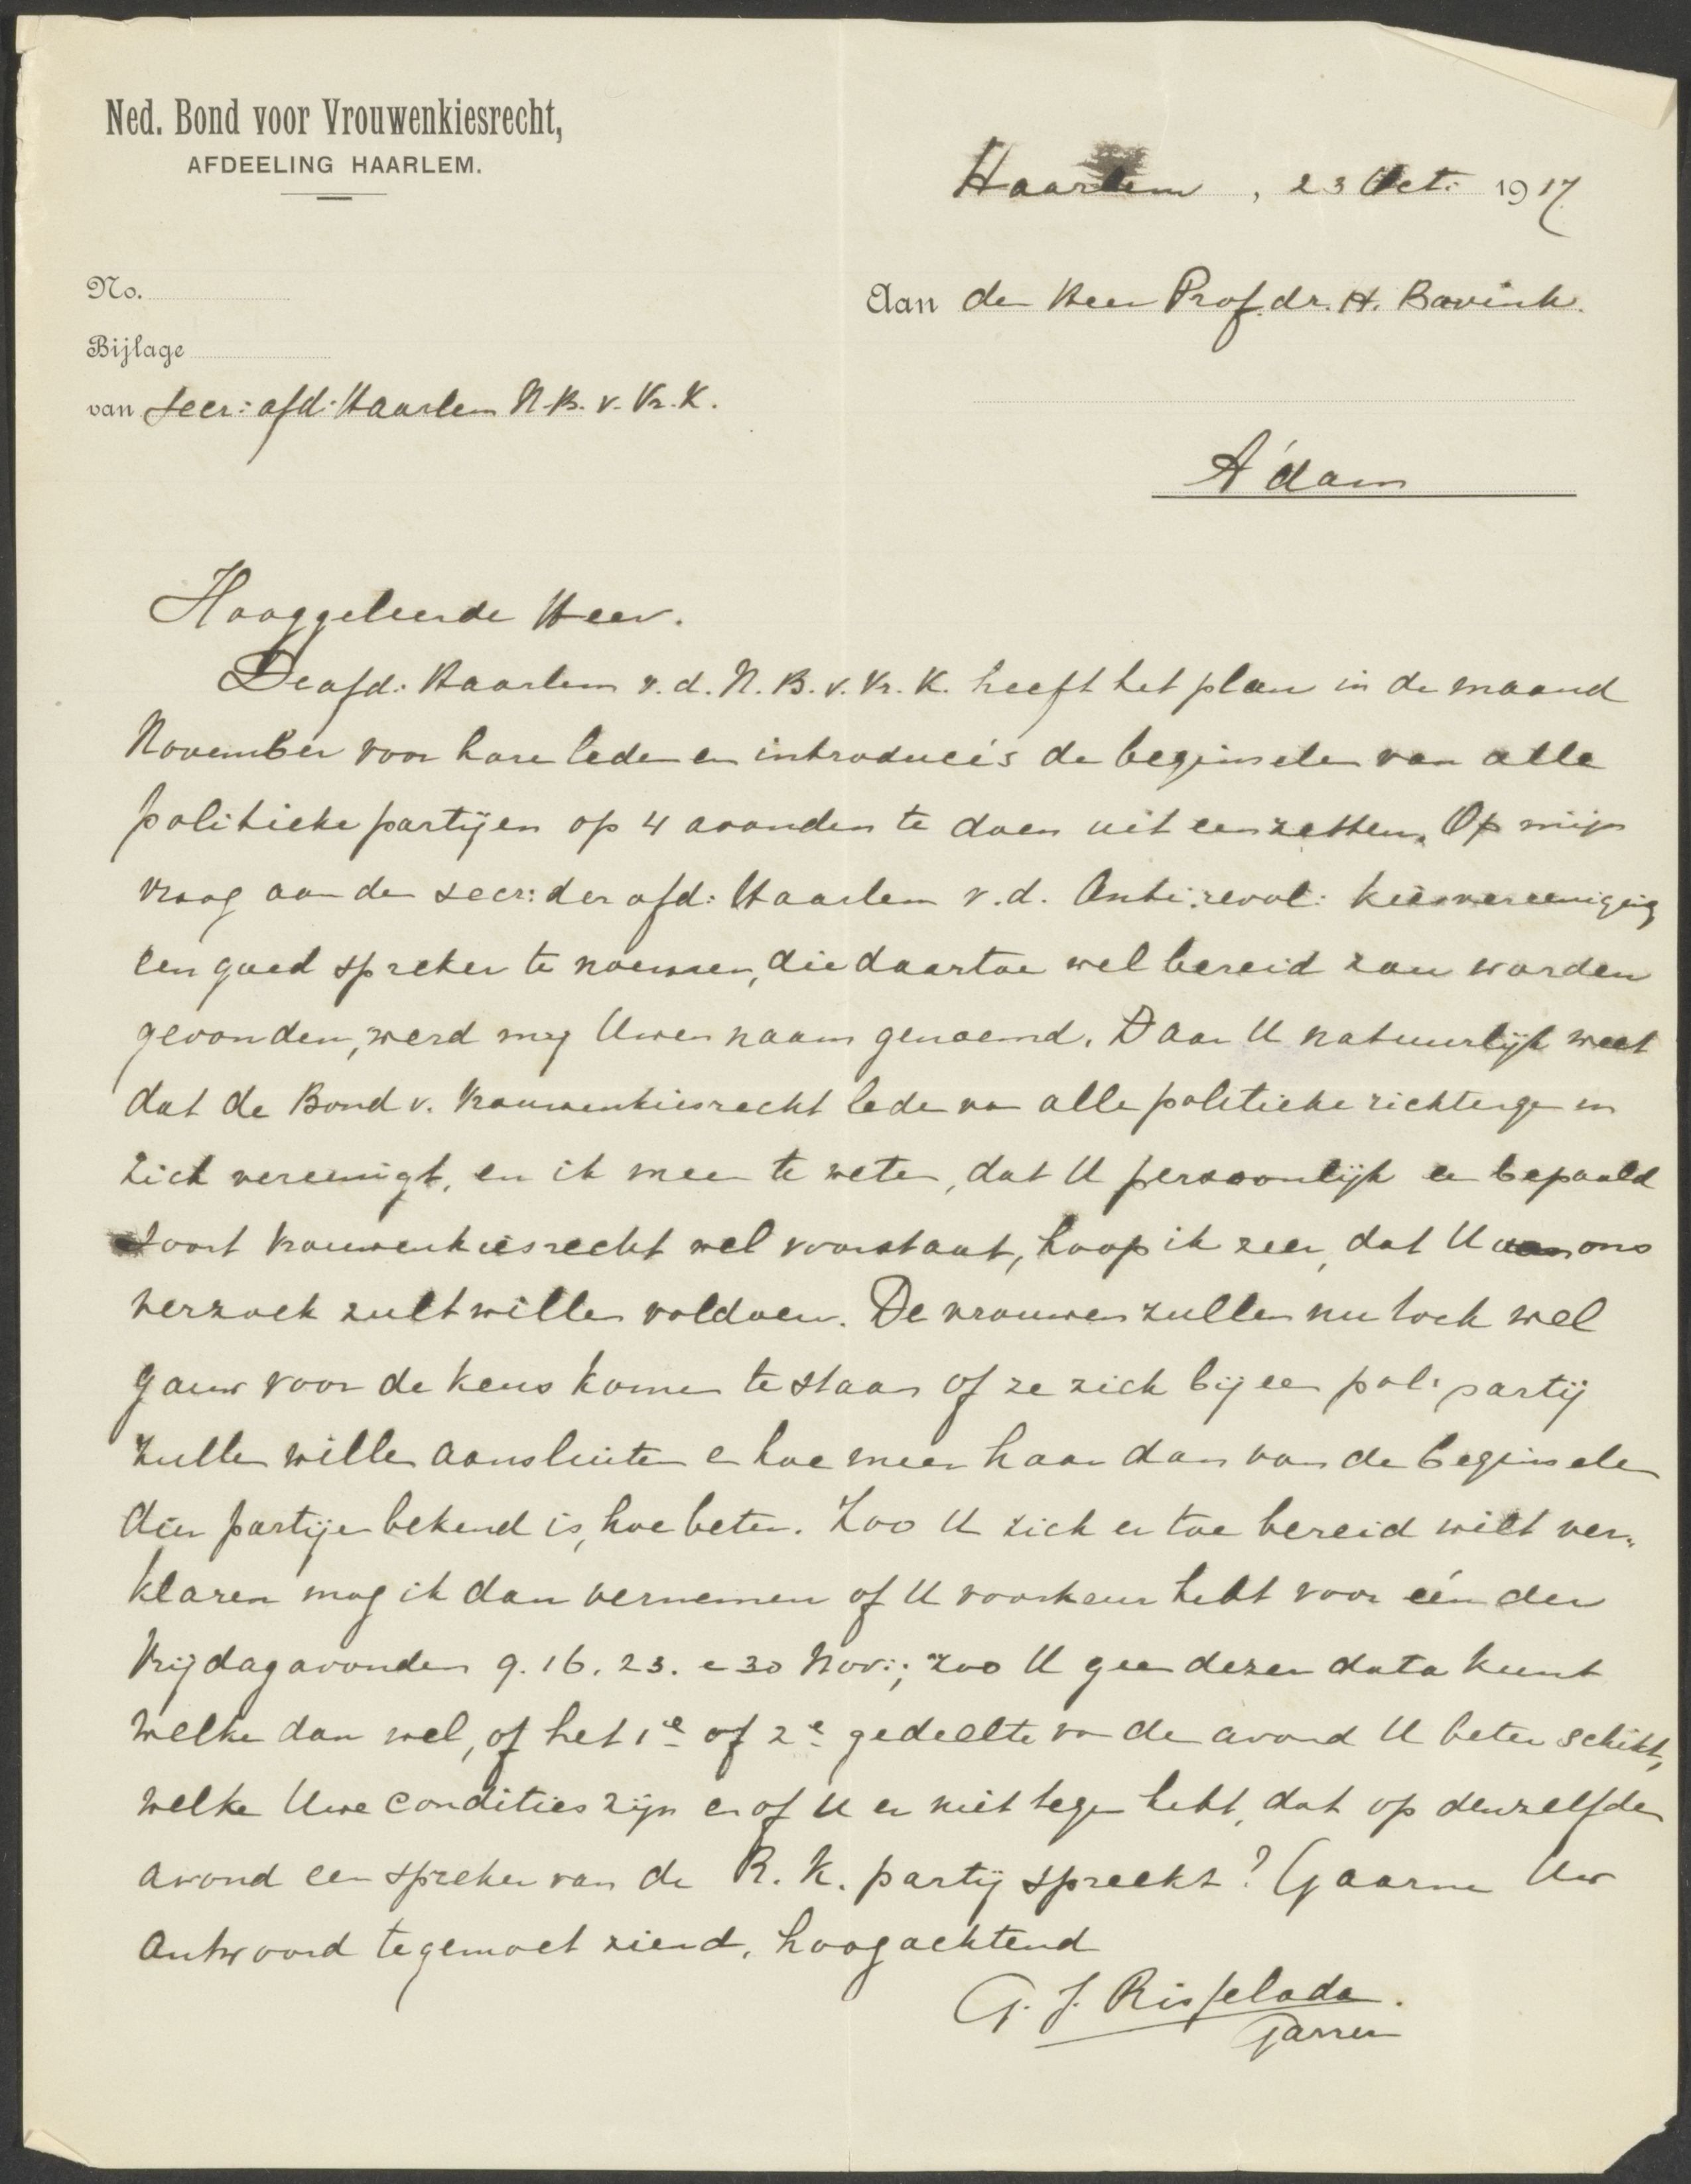 Ned. Bond voor Vrouwenkiesrecht,
AFDEELING HAARLEM.
Haarlem, 23 Oct: 1917
No.
Aan den Heer Prof. dr. H. Bavink.
Bijlage
van Secr: afd: Haarlem N.B. v. Vr. K.
A'dam
Hooggeleerde Heer.
De afd: Haarlem v. d. N. B. v. Vr. K. heeft het plan in de maand
November voor hare leden en introducé's de beginselen van alle
politieke partijen op 4 avonden te doen uiteenzetten. Op mijn
vraag aan den secr: der afd: Haarlem v. d. Anti:revol: kiesvereeniging
een goed spreker te noemen, die daartoe wel bereid zou worden
gevonden, werd mij Uwen naam genoemd. Daar U natuurlijk weet
dat de Bond v. Vrouwenkiesrecht leden van alle politieke richtingen in
zich vereenigt, en ik meen te weten, dat U persoonlijk een bepaald
soort vrouwenkiesrecht wel voorstaat, hoop ik zeer, dat U aan ons
verzoek zult willen voldoen. De vrouwen zullen nu toch wel
gauw voor de keus komen te staan of ze zich bij een pol: partij
zullen willen aansluiten en hoe meer haar dan van de beginselen
dier partijen bekend is, hoe beter. Zoo U zich er toe bereid wilt ver„
klaren mag ik dan vernemen of U voorkeur hebt voor één der
Vrijdagavonden 9. 16. 23. en 30 Nov:; zoo U geen dezer data kunt
welke dan wel, of het 1e of 2e gedeelte van de avond U beter schikt,
welke Uwe condities zijn en of U er niet tegen hebt, dat op denzelfden
avond een spreker van de R. K. partij spreekt? Gaarne Uw
antwoord tegemoet ziend, hoogachtend
G. J. Risselada.